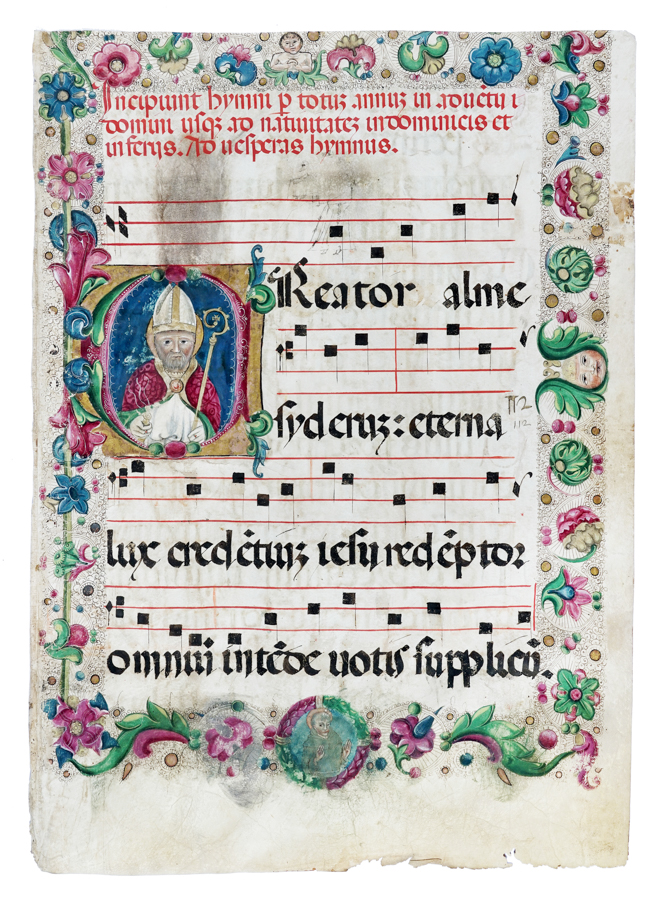 Incipiunt hymni p̄ totuʒ annuʒ in aduētu
domini usqʒ ad natiuitateʒ in dominicis et
in ferijs. Ad uesperas hymnus.
Creator alme
syderuʒ: eterna
112
112
lux credētiuʒ iesu redēptor
omniū intēde uotis supplicū.